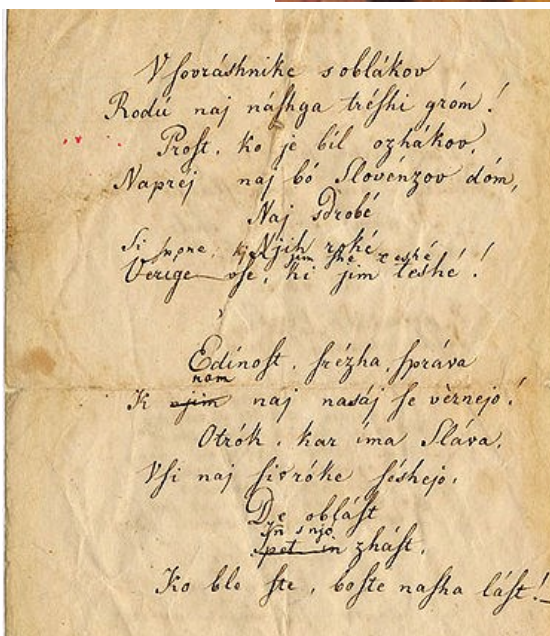 V ſovráshnike s oblákov
Rodú naj náſhga tréſhi gróm!
Proſt, ko je bil ozhákov,
Naprej naj bó Slovénzov dóm,
Naj sdrobé
Njih roké
Si ſpone, ki jim ſhe teshé
Verige vſe, ki jim teshé!
Edínoſt, ſrézha, ſpráva
nam
K njim naj nasáj ſe vèrnejo!
Otrók, kar íma Sláva,
Vſi naj ſi v róke ſéshejo,
De obláſt
in s njo
ſpet in zháſt,
Ko blo ſte, boſte naſha láſt!